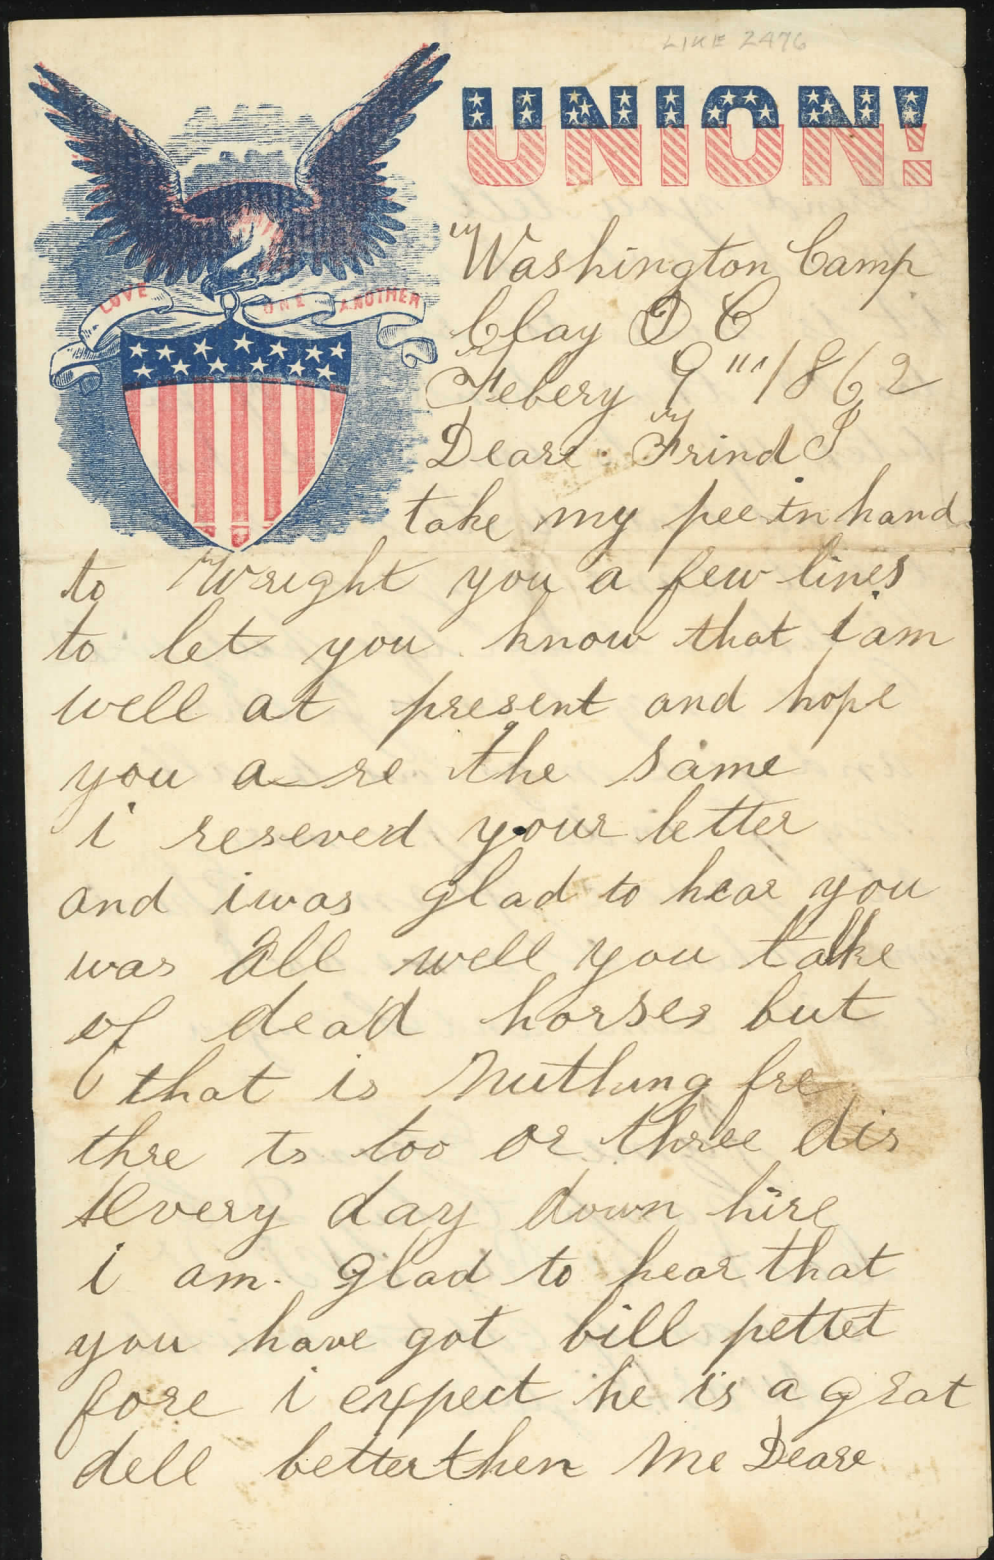 LIKE 2476
UNION!
LOVE ONE ANOTHER
Washington Camp
Clay D C
Febery 9"" 1862
Deare. Frind I
take my pee in hand
to Wright you a few lines
to let you know that i am
well at present and hope
you a re the same
i reseved your letter
and i was glad to hear you
was all well you talke
of dead horses but
that is Nuthung fre
thre is too or three dis
Every day down hire
i am. glad to hear that
you have got bill pettet
fore i expect he is a grat
dell better then me Deare